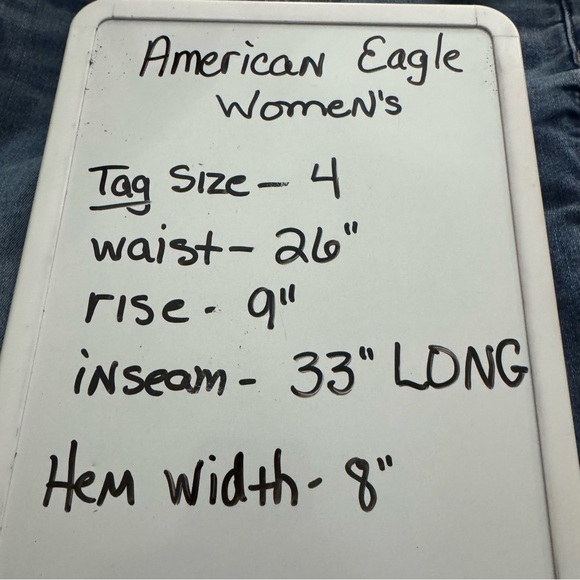 American Eagle
Women's
Tag Size - 4
waist - 26"
rise - 9"
inseam - 33" LONG
Hem Width - 8"